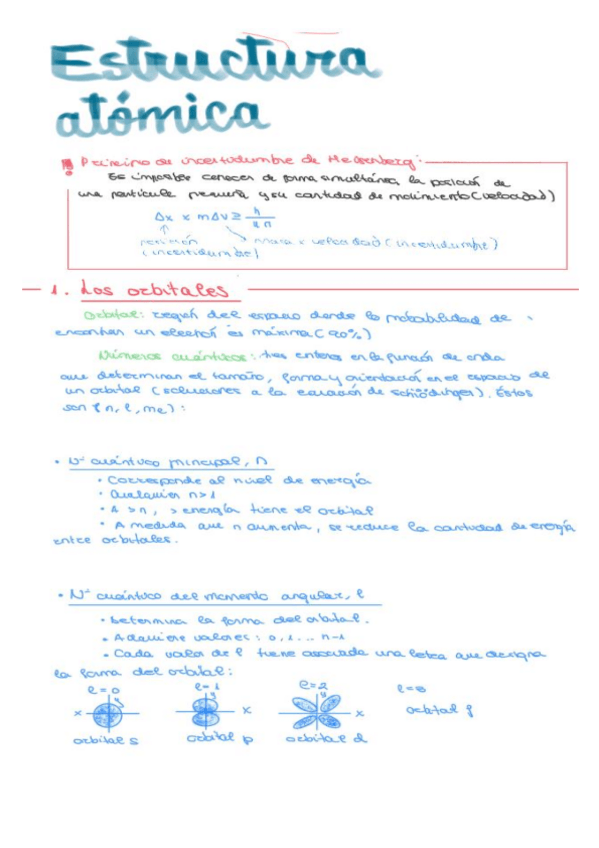 Estructura
atómica
! Principio de incertidumbre de Heisenberg:
Es imposible conocer de forma simultánea, la posición de
una partícula pequeña y su cantidad de movimiento (velocidad)
Δx × mΔv ≥ h
posición masa × velocidad (incertidumbre)
(incertidumbre)
1. Los orbitales
Orbital: región del espacio donde la probabilidad de
encontrar un electrón es máxima (90%)
Números cuánticos: tres enteros en la función de onda
que determinan el tamaño, forma y orientación en el espacio de
un orbital (soluciones a la ecuación de Schrödinger). Éstos
son (n, l, me):
• Nº cuántico principal, n
• Corresponde al nivel de energía
• Cualquier n>1
• A >n, > energía tiene el orbital
• A medida que n aumenta, se reduce la cantidad de energía
entre orbitales.
• Nº cuántico del momento angular, l
• Determina la forma del orbital.
• Adquiere valores: 0, 1 ... n-1
• Cada valor de l tiene asociada una letra que designa
la forma del orbital:
l=0 l=1 l=2 l=3
y y y
x x x orbital f
orbital s orbital p orbital d